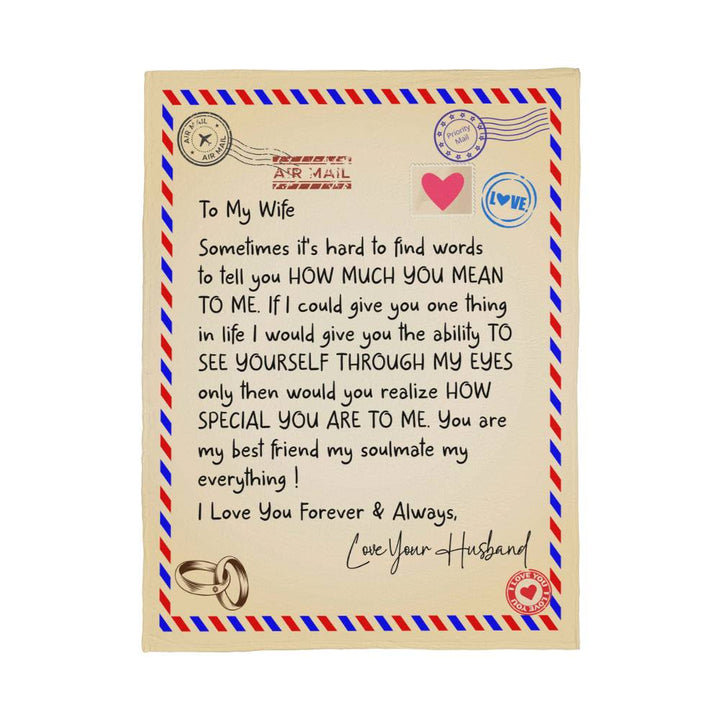 AIR MAIL
AIR MAIL
Priority
Mail
AIR MAIL
LOVE
To My Wife
Sometimes it's hard to find words
to tell you HOW MUCH YOU MEAN
TO ME. If I could give you one thing
in life I would give you the ability TO
SEE YOURSELF THROUGH MY EYES
only then would you realize HOW
SPECIAL YOU ARE TO ME. You are
my best friend my soulmate my
everything !
I Love You Forever & Always,
Love Your Husband
I LOVE YOU
I LOVE YOU